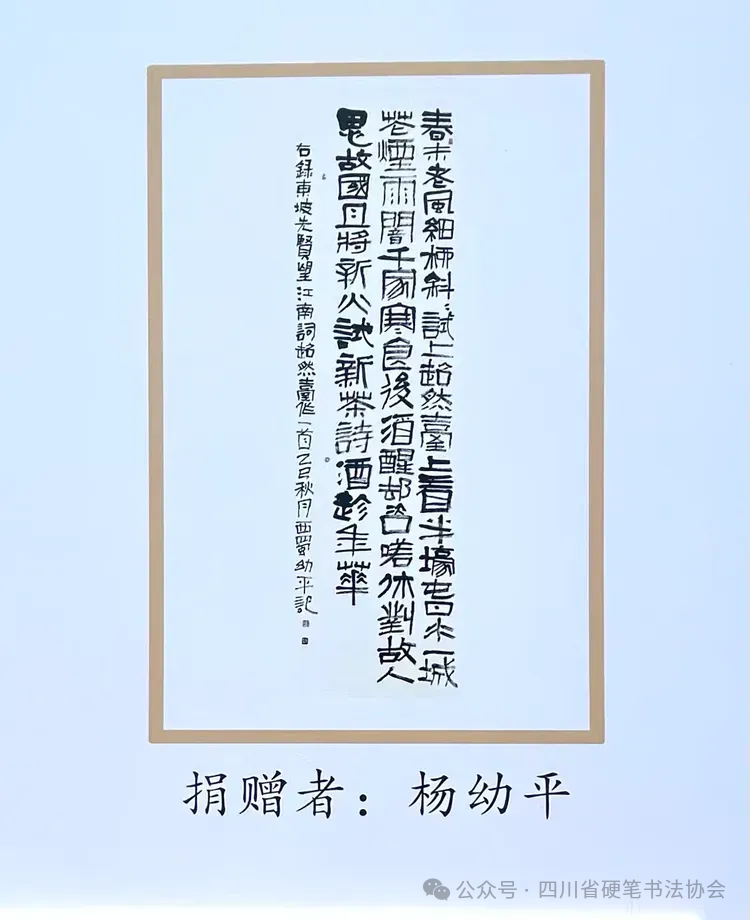 春未老風細柳斜〻試上超然臺上看半壕春水一城
花煙雨闇千家寒食後酒醒却咨嗟休對故人
思故國且將新火試新茶詩酒趁年華
右錄東坡先賢望江南詞超然臺作一首乙巳秋月西蜀幼平記
捐赠者：杨幼平
公众号·四川省硬笔书法协会